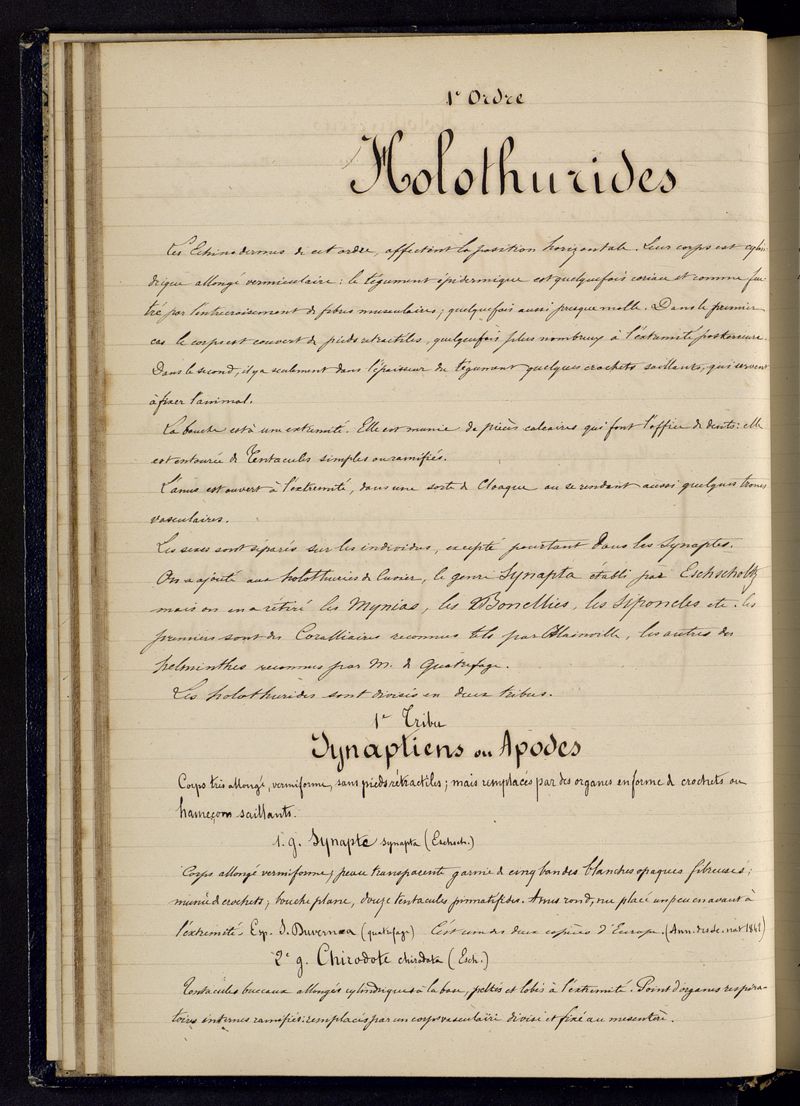 1e Ordre
Holothurides
Les Echinodermes de cet ordre, affectent la position horizontale. Leur corps est cylin-
drique allongé vermiculaire : le tégument épidermique est quelquefois coriace et comme feu-
tré par l'entrecroisement de fibres musculaires ; quelquefois aussi presque molle. Dans le premier
cas le corps est couvert de pieds rétractiles, quelquefois plus nombreux à l'extrémité postérieure.
Dans le second, il y a seulement dans l'épaisseur du tégument quelques crochets saillants, qui servent
à fixer l'animal.
La bouche est à une extrémité. Elle est munie de pièces calcaires qui font l'office de dents : elle
est entourée de Tentacules simples ou ramifiés.
L'anus est ouvert à l'extrémité, dans une sorte de Cloaque ou se rendent aussi quelques troncs
vasculaires.
Les sexes sont séparés sur les individus, excepté pourtant dans les Synaptes.
On a ajouté aux holothuries de Cuvier, le genre Synapta établi par Eschscholtz
mais on en a rétiré les Mynias, les Bonellies, les Siponcles etc : les
premiers sont des Coralliaires reconnus tels par Blainville, les autres des
helminthes reconnus par M. de Quatrefage.
Les holothurides sont divisés en deux tribus.
1e Tribu
Synaptiens ou Apodes
Corps très allongé, vermiforme, sans pieds rétractiles ; mais remplacés par des organes en forme de crochets ou
hameçons saillants.
1. g. Synapte synapta (Eschsch.)
Corps allongé vermiforme ; peau transparente garnie de cinq bandes blanches opaques fibreuses ;
munie de crochets ; bouche plane, douze tentacules pinnatifides. Anus rond, nu placé un peu en avant à
l'extrémité. Exp. S. Duvernæa (quatrefage) C'est une des deux espèces d'Europe. (Ann. des sc. nat 1842)
2e g. Chirodote chirodota (Esch.)
Tentacules buccaux allongés cylindriques à la base, peltés et lobés à l'extrémité. Point d'organes respira-
toires internes ramifiés : remplacés par un corps vasculaire divisé et fixé au mesentère.